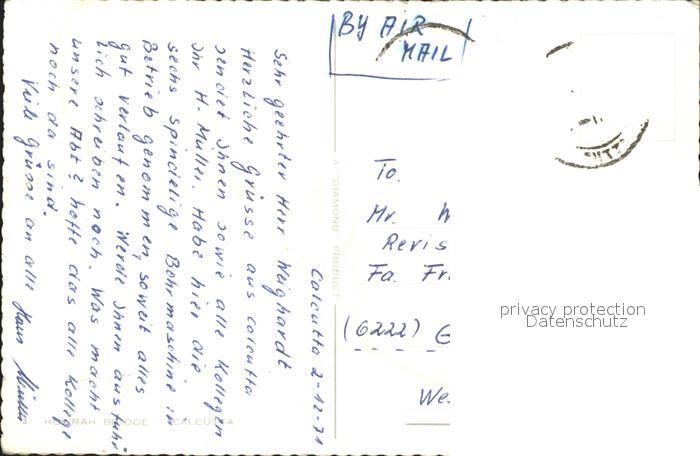 Calcutta 2-12-71
Sehr geehrter Herr Weighardt.
Herzliche Grüsse aus Calcutta
sendet Ihnen sowie alle Kollegen
Ihr H. Müller. Habe hier die
sechs spindelige Bohrmaschine in
Betrieb genommen, soweit alles
gut verlaufen. Werde Ihnen ausführ
lich schreiben noch. Was macht
unsere Abt? hoffe das alle Kollege
noch da sind.
Viele Grüsse an alle Hans Müller
HOWRAH BRIDGE CALCUTTA
A "DIAMOND" PRODUCT
BY AIR
MAIL
To.
Mr. W
Revis
Fa. Fr
(6222) G
We
privacy protection
Datenschutz